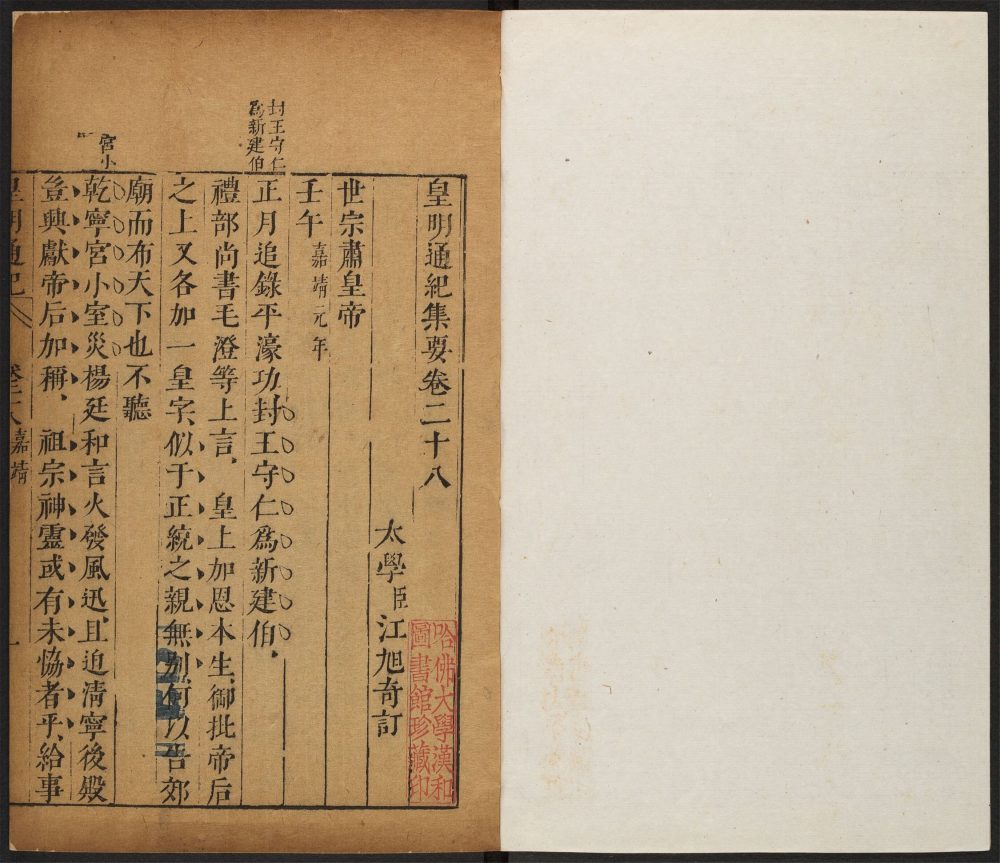 皇明通紀集要卷二十八
太學臣江旭奇訂
世宗肅皇帝
壬午嘉靖元年
封王守仁
爲新建伯
正月追錄平濠功封王守仁爲新建伯
禮部尚書毛澄等上言皇上加恩本生御批帝后
之上又各加一皇字似于正統之親無別何以告郊
廟而布天下也不聽
宮小
乾寧宮小室災楊廷和言火發風迅且迫清寧後殿
豈興獻帝后加稱祖宗神靈或有未恊者乎給事
皇明通紀
卷二八
嘉靖
一
哈佛大學漢和
圖書館珍藏印